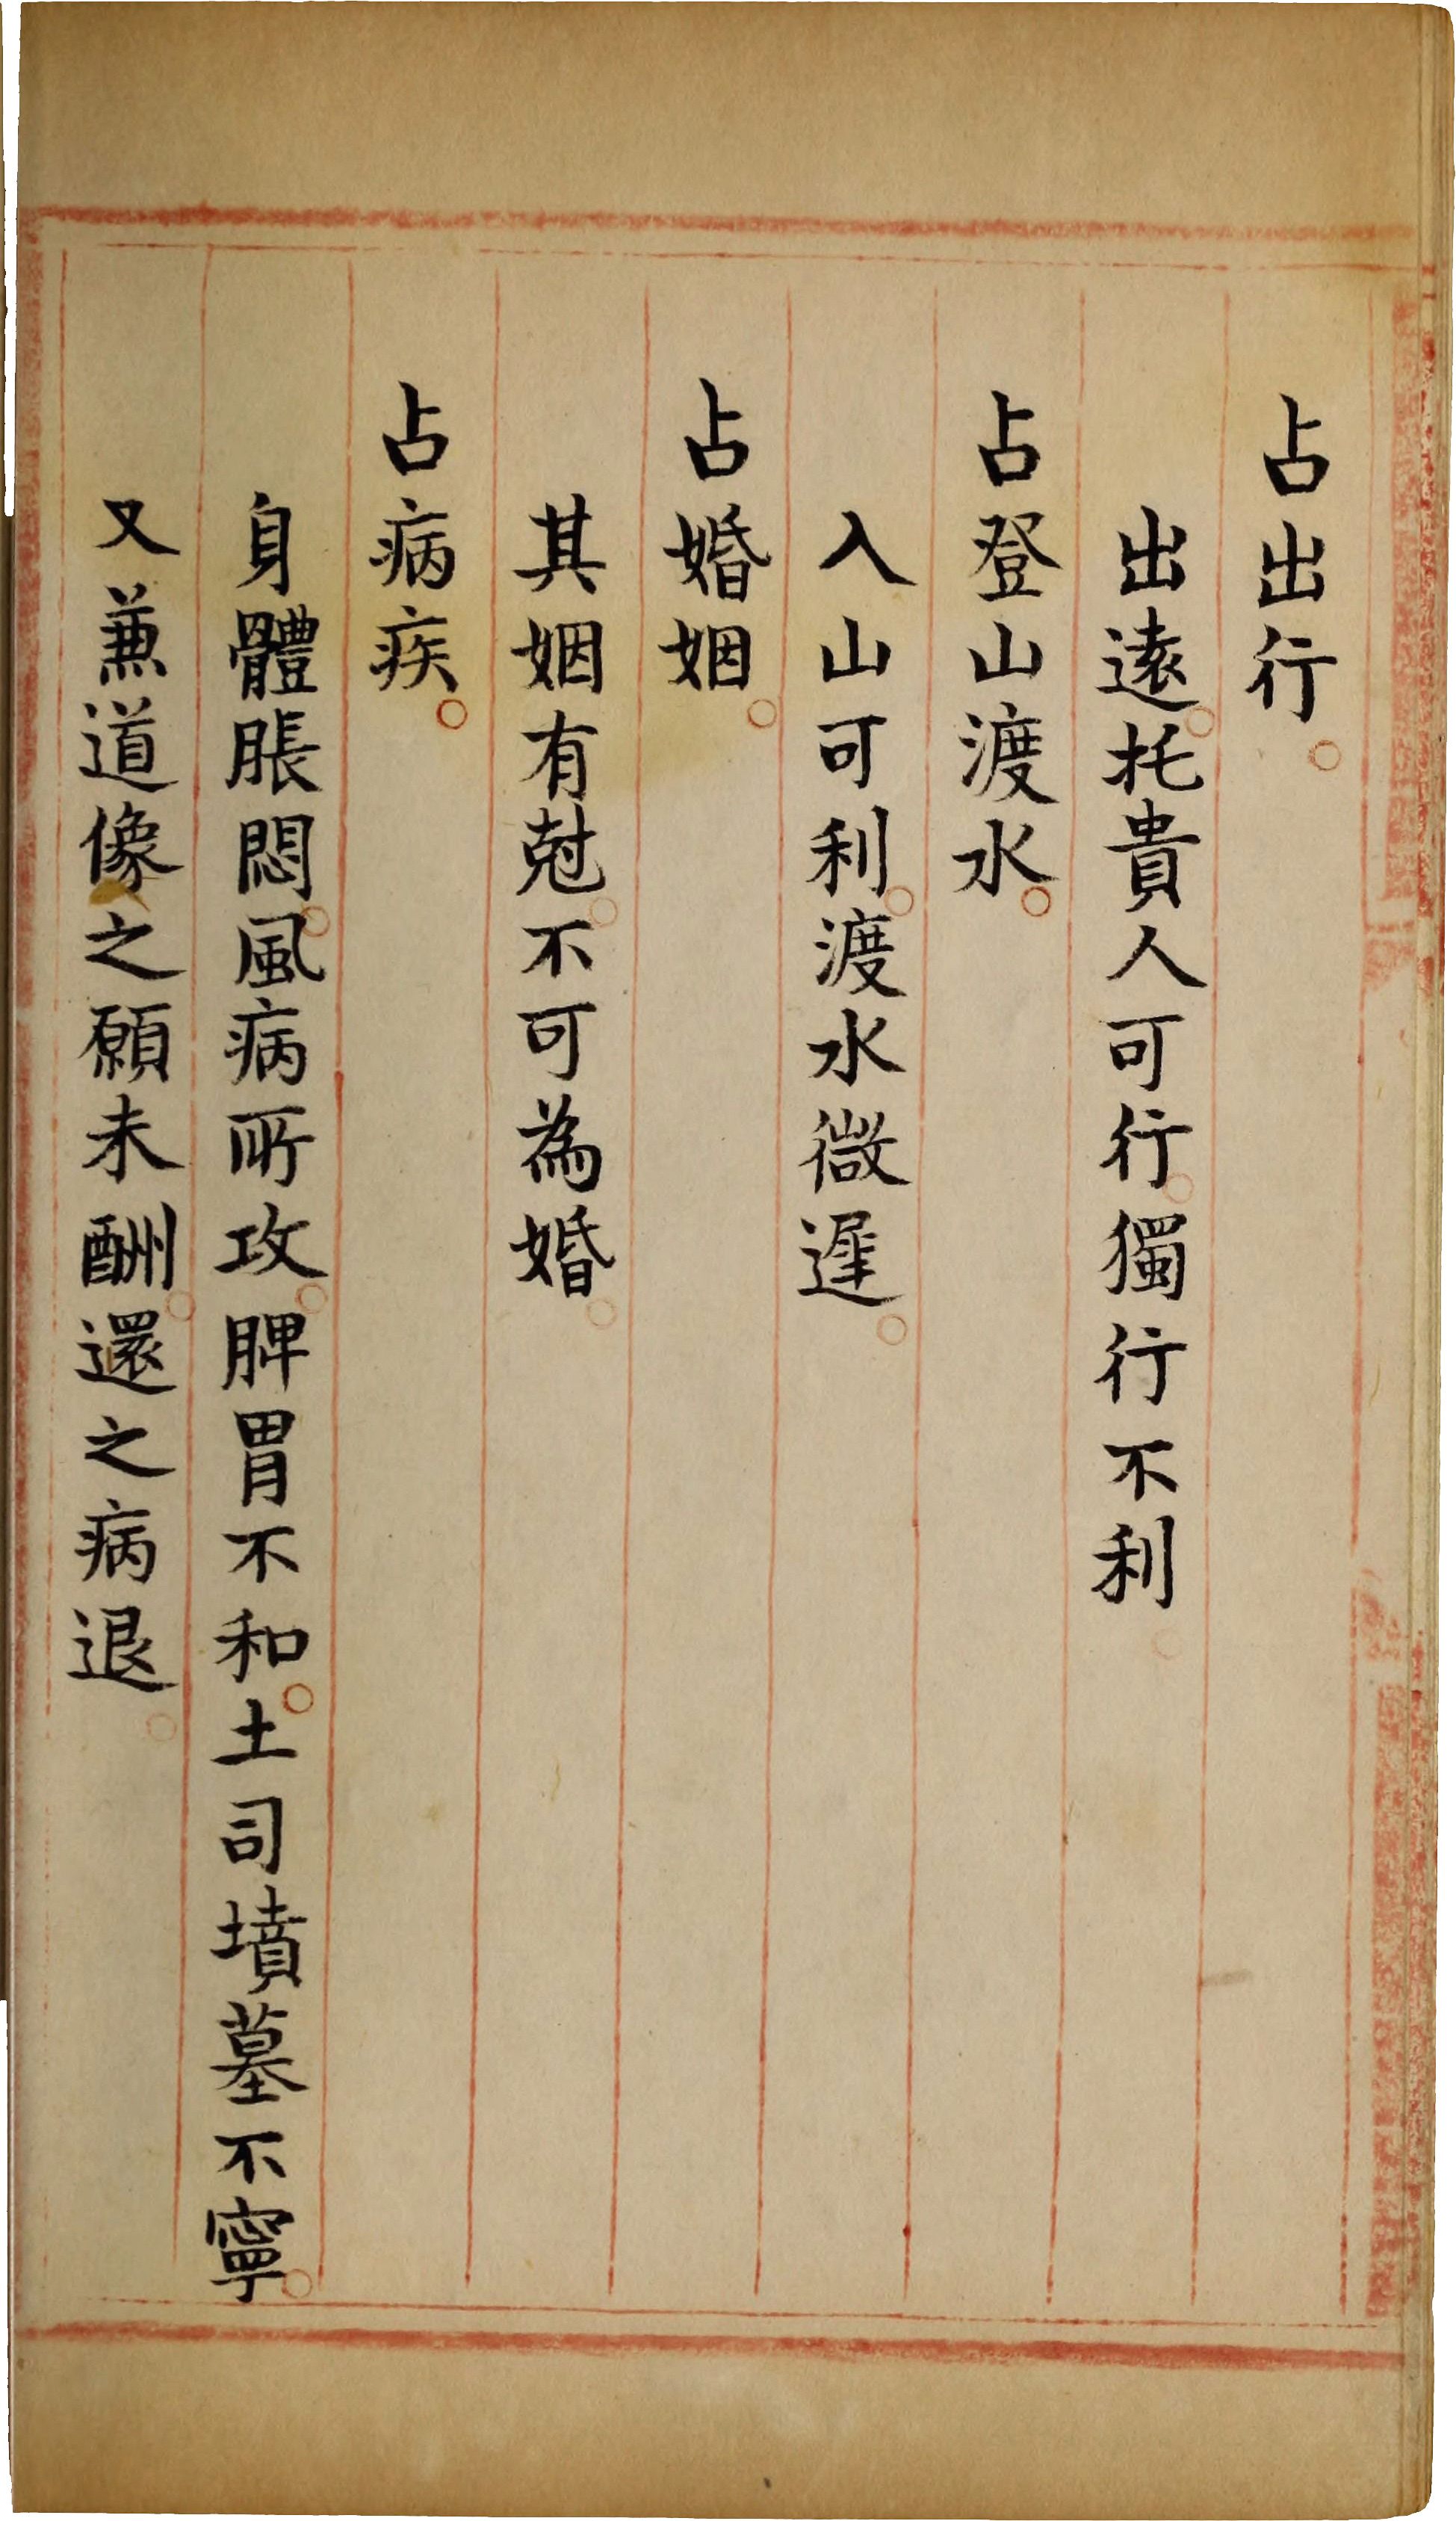 占出行。
出遠。托貴人可行。獨行不利。
占登山渡水。
入山可利。渡水微遲。
占婚姻。
其姻有尅。不可為婚。
占病疾。
身體脹悶。風病所攻。脾胃不和。土司墳墓不寧。
又兼道像之願未酬。還之病退。